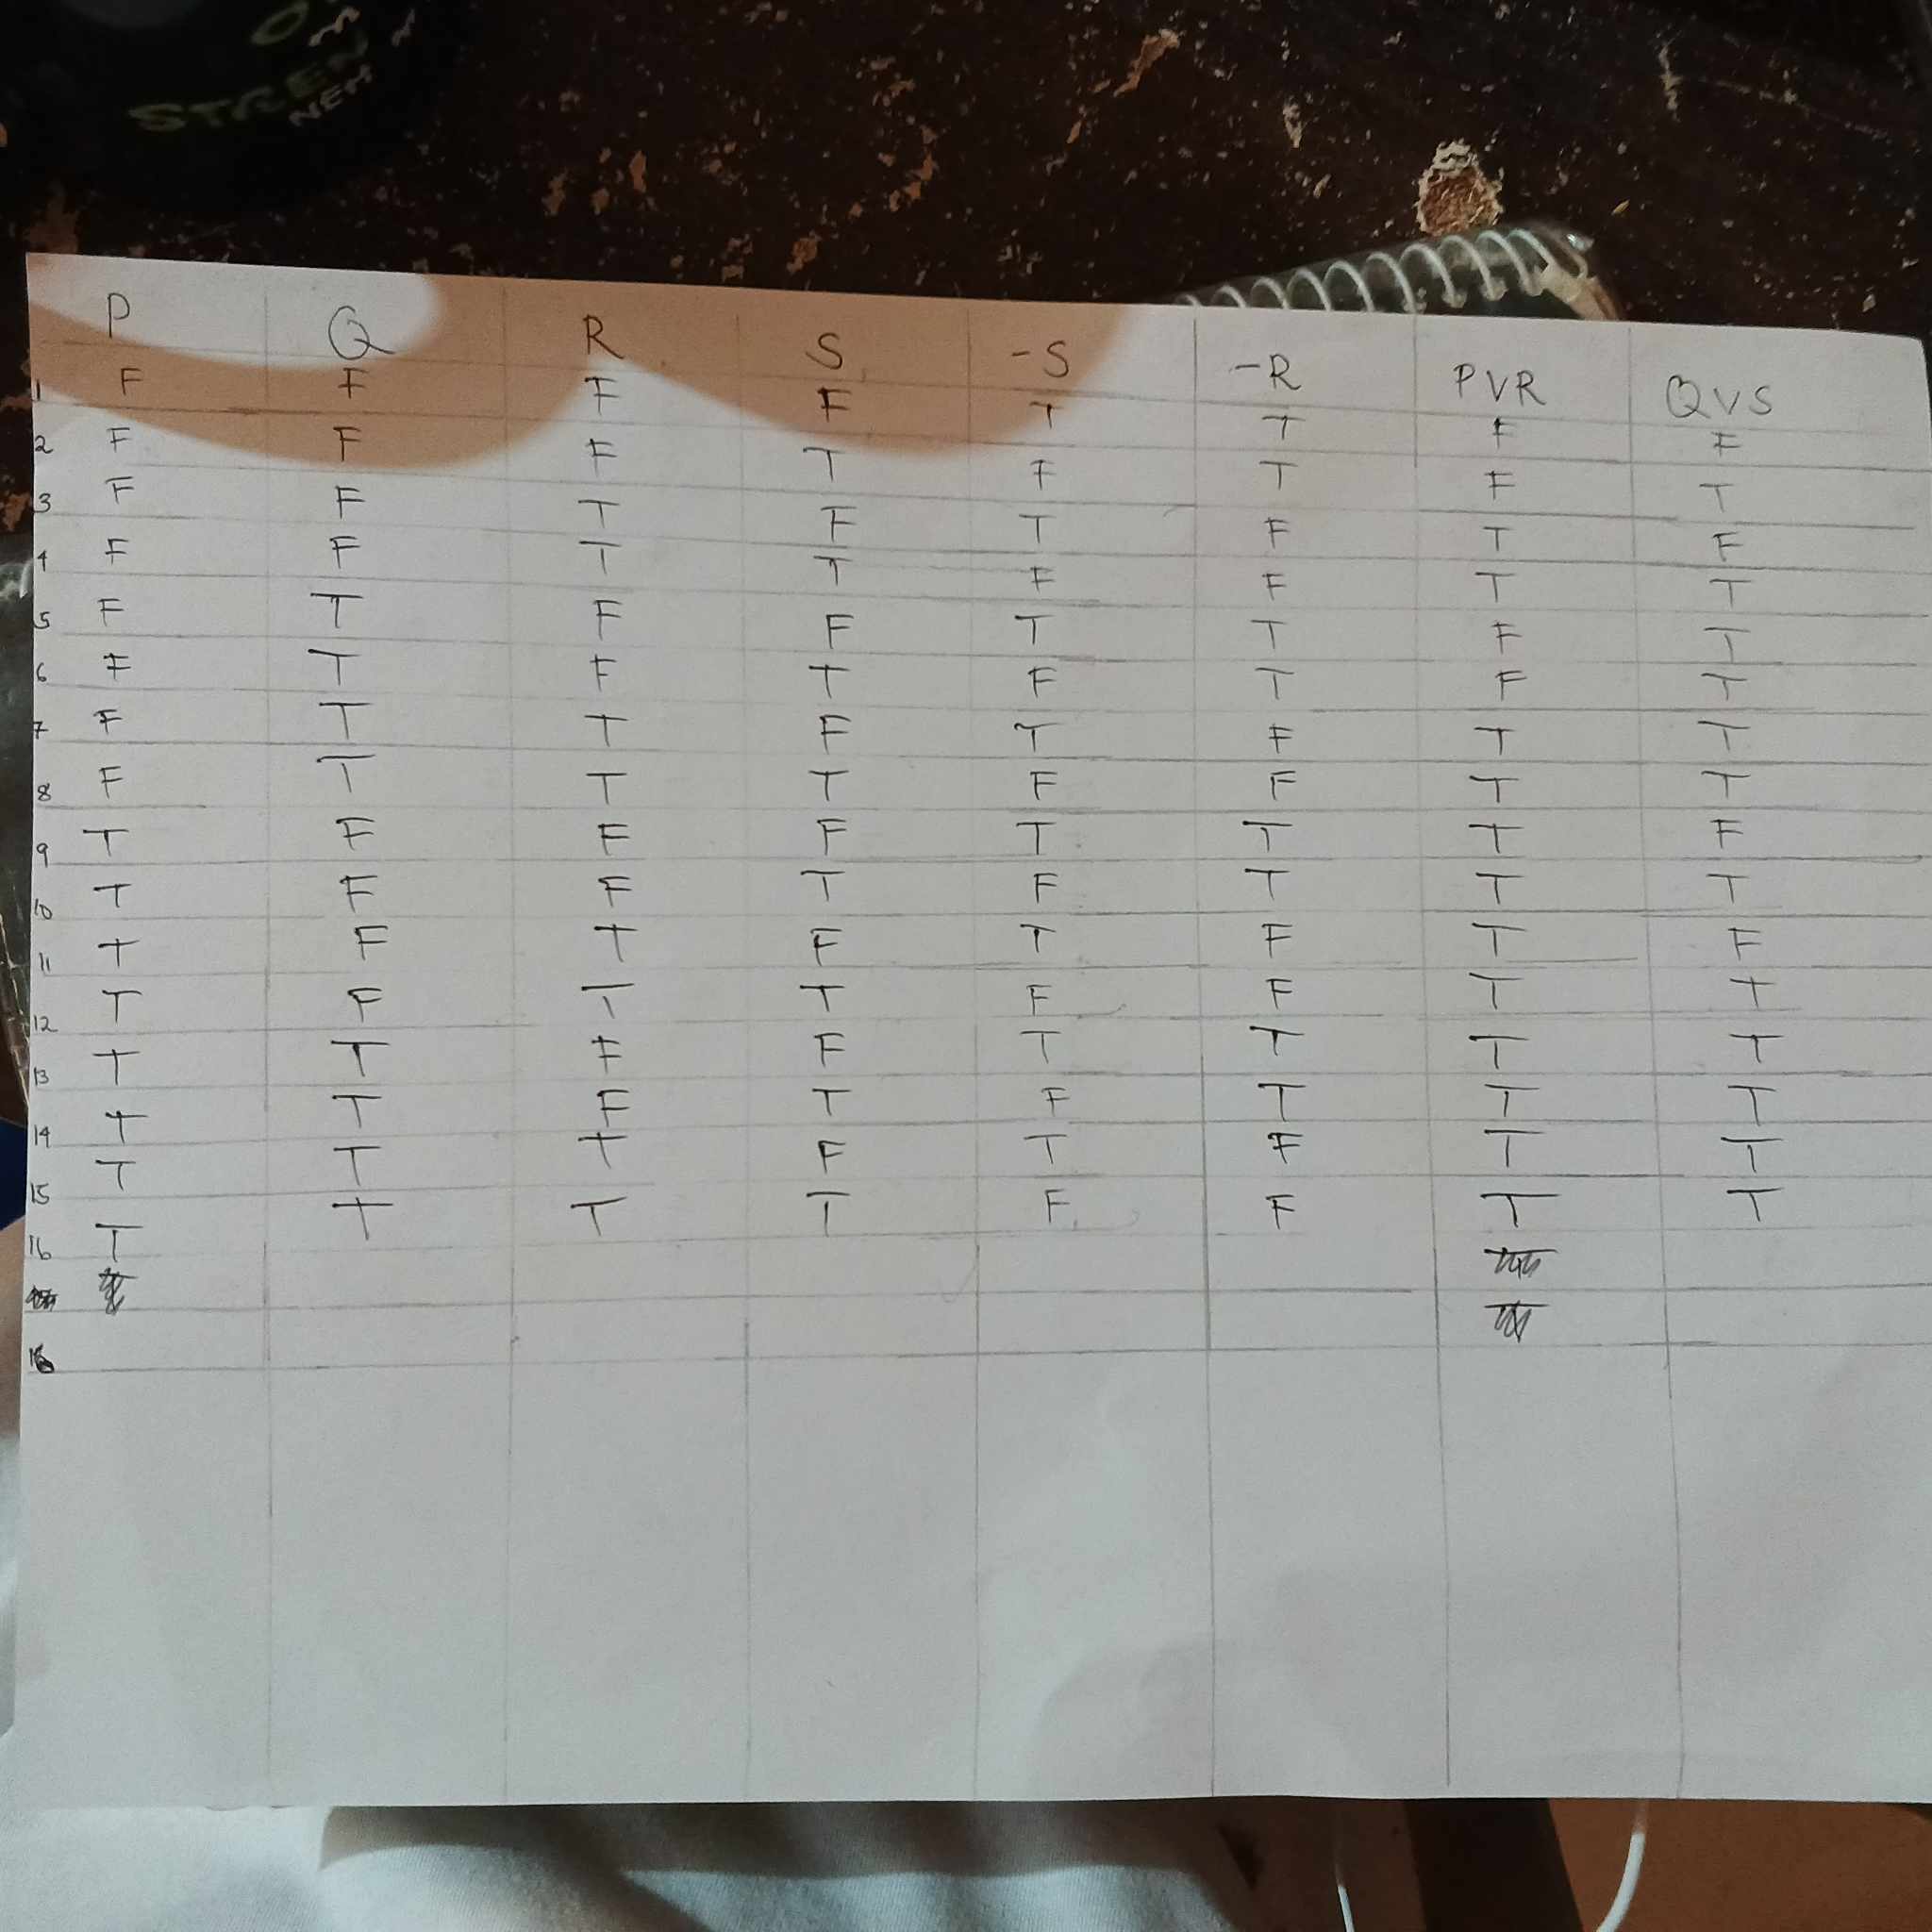 STREN
NEW
P Q R S -S -R PVR QVS
1 F F F F T T F F
2 F F F T F T F T
3 F F T F T F T F
4 F F T T F F T T
5 F T F F T T F T
6 F T F T F T F T
7 F T T F T F T T
8 F T T T F F T T
9 T F F F T T T F
10 T F F T F T T T
11 T F T F T F T F
12 T F T T F F T T
13 T T F F T T T T
14 T T F T F T T T
15 T T T F T F T T
16 T T T T F F T T